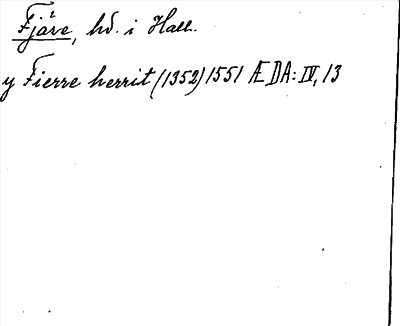 Fjäre, hd. i Hall.
y Fierre herrit (1352) 1551 ÆDA: IV, 13